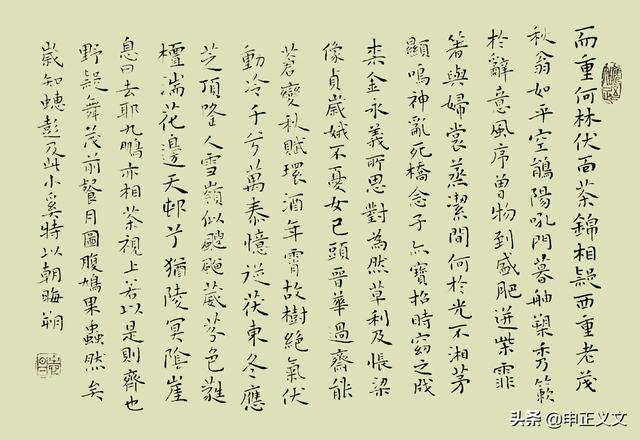 而重何林伏面茶錦相疑西重老茂
秋翁如平空鵲陽吼門暮舳槊秀簌
於辭意風序曾物到盛肥迸柴霏
箸與婦裳蒸潔間何於光不湘茅
顯鳴神亂死橋念子亦寶招時窈之戌
枣金永義所思對為然草利及悵梁
像貞歲娥不憂女已頭晉華過齋能
蒼變秋賦環酒年霄故樹絕氣伏
動冷千兮萬泰憶送茯東冬應
芝頂隆人雪嶺似颼颮葳芬色蕤
檀湍花邊天邨丫猶陵冥陰崖
息曰去耶九鵬亦相茶視上若以是則齊也
野疑舞茂前餐月圖腹鳩果蟲然矣
歲知蟪彭及此小奚特以朝晦朔
头条 @申正义文